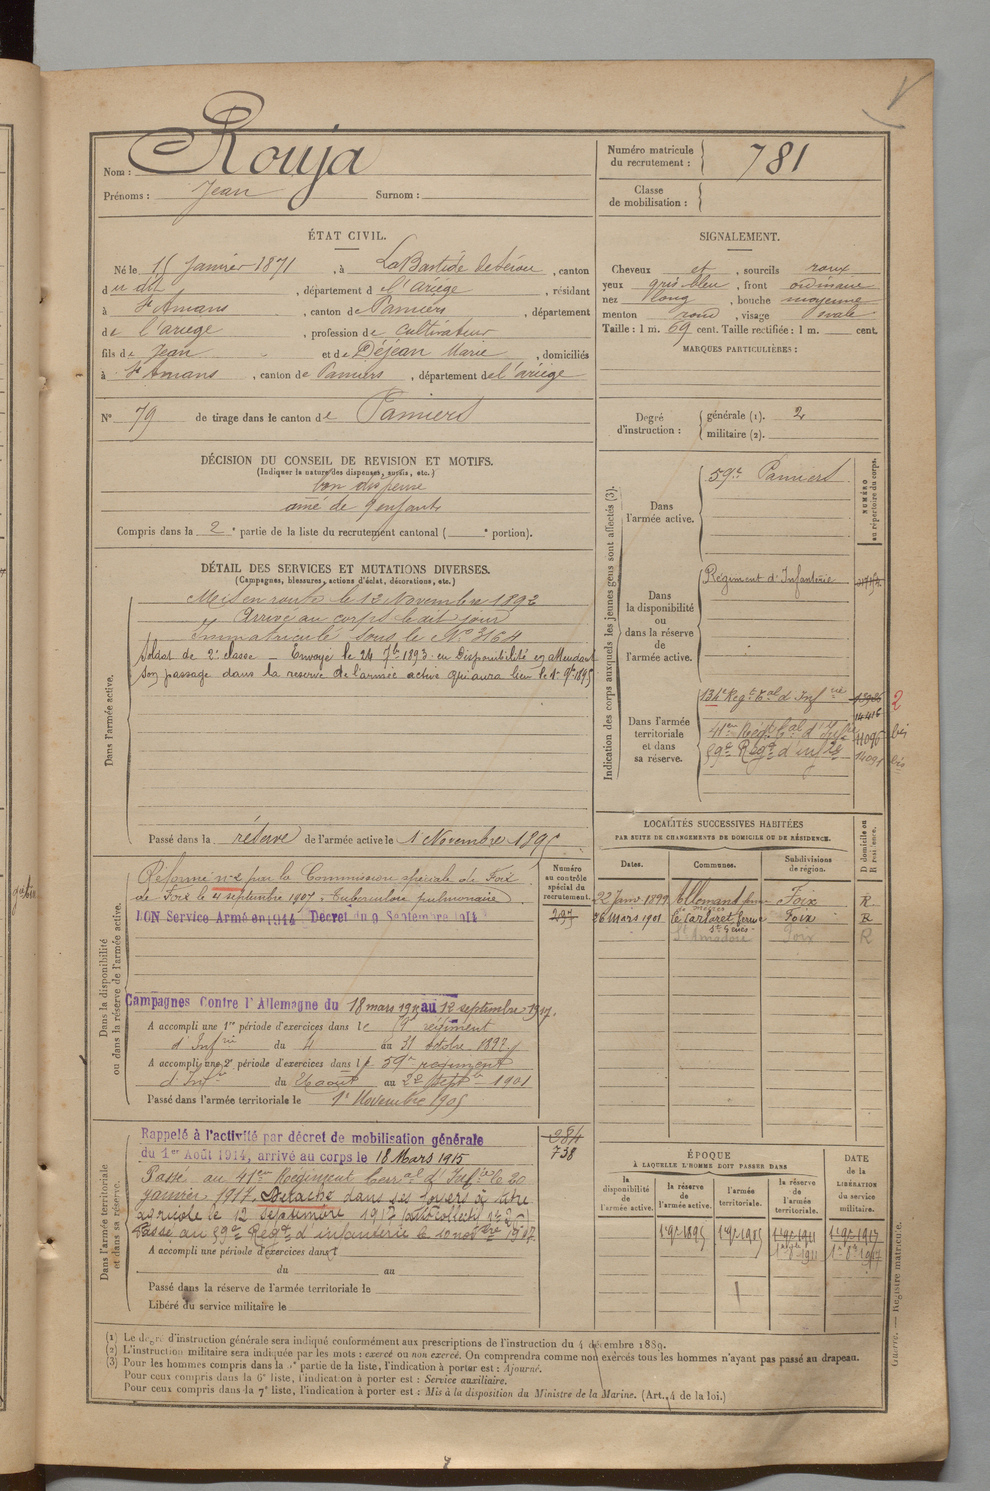 Nom : Rouja
Prénoms : Jean Surnom :
Numéro matricule du recrutement : 781
Classe de mobilisation :
ÉTAT CIVIL.
Né le 15 Janvier 1871, à LaBastide de Sérou, canton
du dit, département de l'Ariège, résidant
à St Amans, canton de Pamiers, département
de l'ariège, profession de cultivateur
fils de Jean et de Déjean Marie, domiciliés
à St Amans, canton de Pamiers, département de l'ariège
N° 79 de tirage dans le canton de Pamiers
SIGNALEMENT.
Cheveux et, sourcils roux
yeux gris bleu, front ordinaire
nez long, bouche moyenne
menton rond, visage ovale
Taille : 1 m. 69 cent. Taille rectifiée : 1 m. cent.
MARQUES PARTICULIÈRES :
Degré d'instruction : générale (1). 2
militaire (2).
DÉCISION DU CONSEIL DE REVISION ET MOTIFS.
(Indiquer la nature des dispenses, sursis, etc.)
bon dispensé
aîné de 7 enfants
Compris dans la 2e partie de la liste du recrutement cantonal ( e portion).
DÉTAIL DES SERVICES ET MUTATIONS DIVERSES.
(Campagnes, blessures, actions d'éclat, décorations, etc.)
Dans l'armée active.
Mis en route le 13 Novembre 1892
Arrivé au corps le dit jour
Immatriculé sous le N° 3164
Soldat de 2e classe — Envoyé le 24 7bre 1893 en Disponibilité en attendant
son passage dans la réserve de l'armée active qui aura lieu le 1er 9bre 1895
Passé dans la réserve de l'armée active le 1 Novembre 1895
Indication des corps auxquels les jeunes gens sont affectés (3).
NUMÉRO au répertoire du corps.
Dans l'armée active.
59e Pamiers
Dans la disponibilité ou dans la réserve de l'armée active.
Régiment d'Infanterie
Dans l'armée territoriale et dans sa réserve.
134e Régt tal d'Infrie
14416 2
41e Régt tal d'Infie 11096 bis
59e Régt d'infie 14091 bis
LOCALITÉS SUCCESSIVES HABITÉES
PAR SUITE DE CHANGEMENTS DE DOMICILE OU DE RÉSIDENCE.
Dates. Communes. Subdivisions de région. D domicile ou R résidence.
22 Janv 1899 Foix R
26 Mars 1901 Foix R
St Amadou Foix R
Dans la disponibilité ou dans la réserve de l'armée active.
Numéro au contrôle spécial du recrutement.
237
Réformé n° 2 par la Commission spéciale de Foix
de Foix le 4 septembre 1907. Tuberculose pulmonaire
BON Service Armé en 1914 Décret du 9 Septembre 1914
Campagnes Contre l'Allemagne du 18 mars 1915 au 12 septembre 1917.
A accompli une 1re période d'exercices dans le 59e régiment
d'Infrie du 4 au 31 octobre 1897
A accompli une 2e période d'exercices dans le 59e régiment
d'Infie du 26 août au 22 Septbre 1901
Passé dans l'armée territoriale le 1er Novembre 1905
Dans l'armée territoriale et dans sa réserve.
284
738
Rappelé à l'activité par décret de mobilisation générale
du 1er Août 1914, arrivé au corps le 18 Mars 1915
Passé au 41eme Régiment Terral d'Infie le 20
janvier 1917. Détaché dans ses foyers à titre
agricole le 12 septembre 1917
Passé au 59e Régt d'infanterie le 10 novbre 1917.
A accompli une période d'exercices dans
du au
Passé dans la réserve de l'armée territoriale le
Libéré du service militaire le
ÉPOQUE
À LAQUELLE L'HOMME DOIT PASSER DANS
la disponibilité de l'armée active. la réserve de l'armée active. l'armée territoriale. la réserve de l'armée territoriale.
DATE de la LIBÉRATION du service militaire.
1er 9bre 1895 1er 9bre 1905 1er 9bre 1911 1er 9bre 1917
1er 8bre 1911 1er 8bre 1917
(1) Le degré d'instruction générale sera indiqué conformément aux prescriptions de l'instruction du 4 décembre 1889.
(2) L'instruction militaire sera indiquée par les mots : exercé ou non exercé. On comprendra comme non exercés tous les hommes n'ayant pas passé au drapeau.
(3) Pour les hommes compris dans la 5e partie de la liste, l'indication à porter est : Ajourné.
Pour ceux compris dans la 6e liste, l'indication à porter est : Service auxiliaire.
Pour ceux compris dans la 7e liste, l'indication à porter est : Mis à la disposition du Ministre de la Marine. (Art. 4 de la loi.)
Guerre. — Registre matricule.